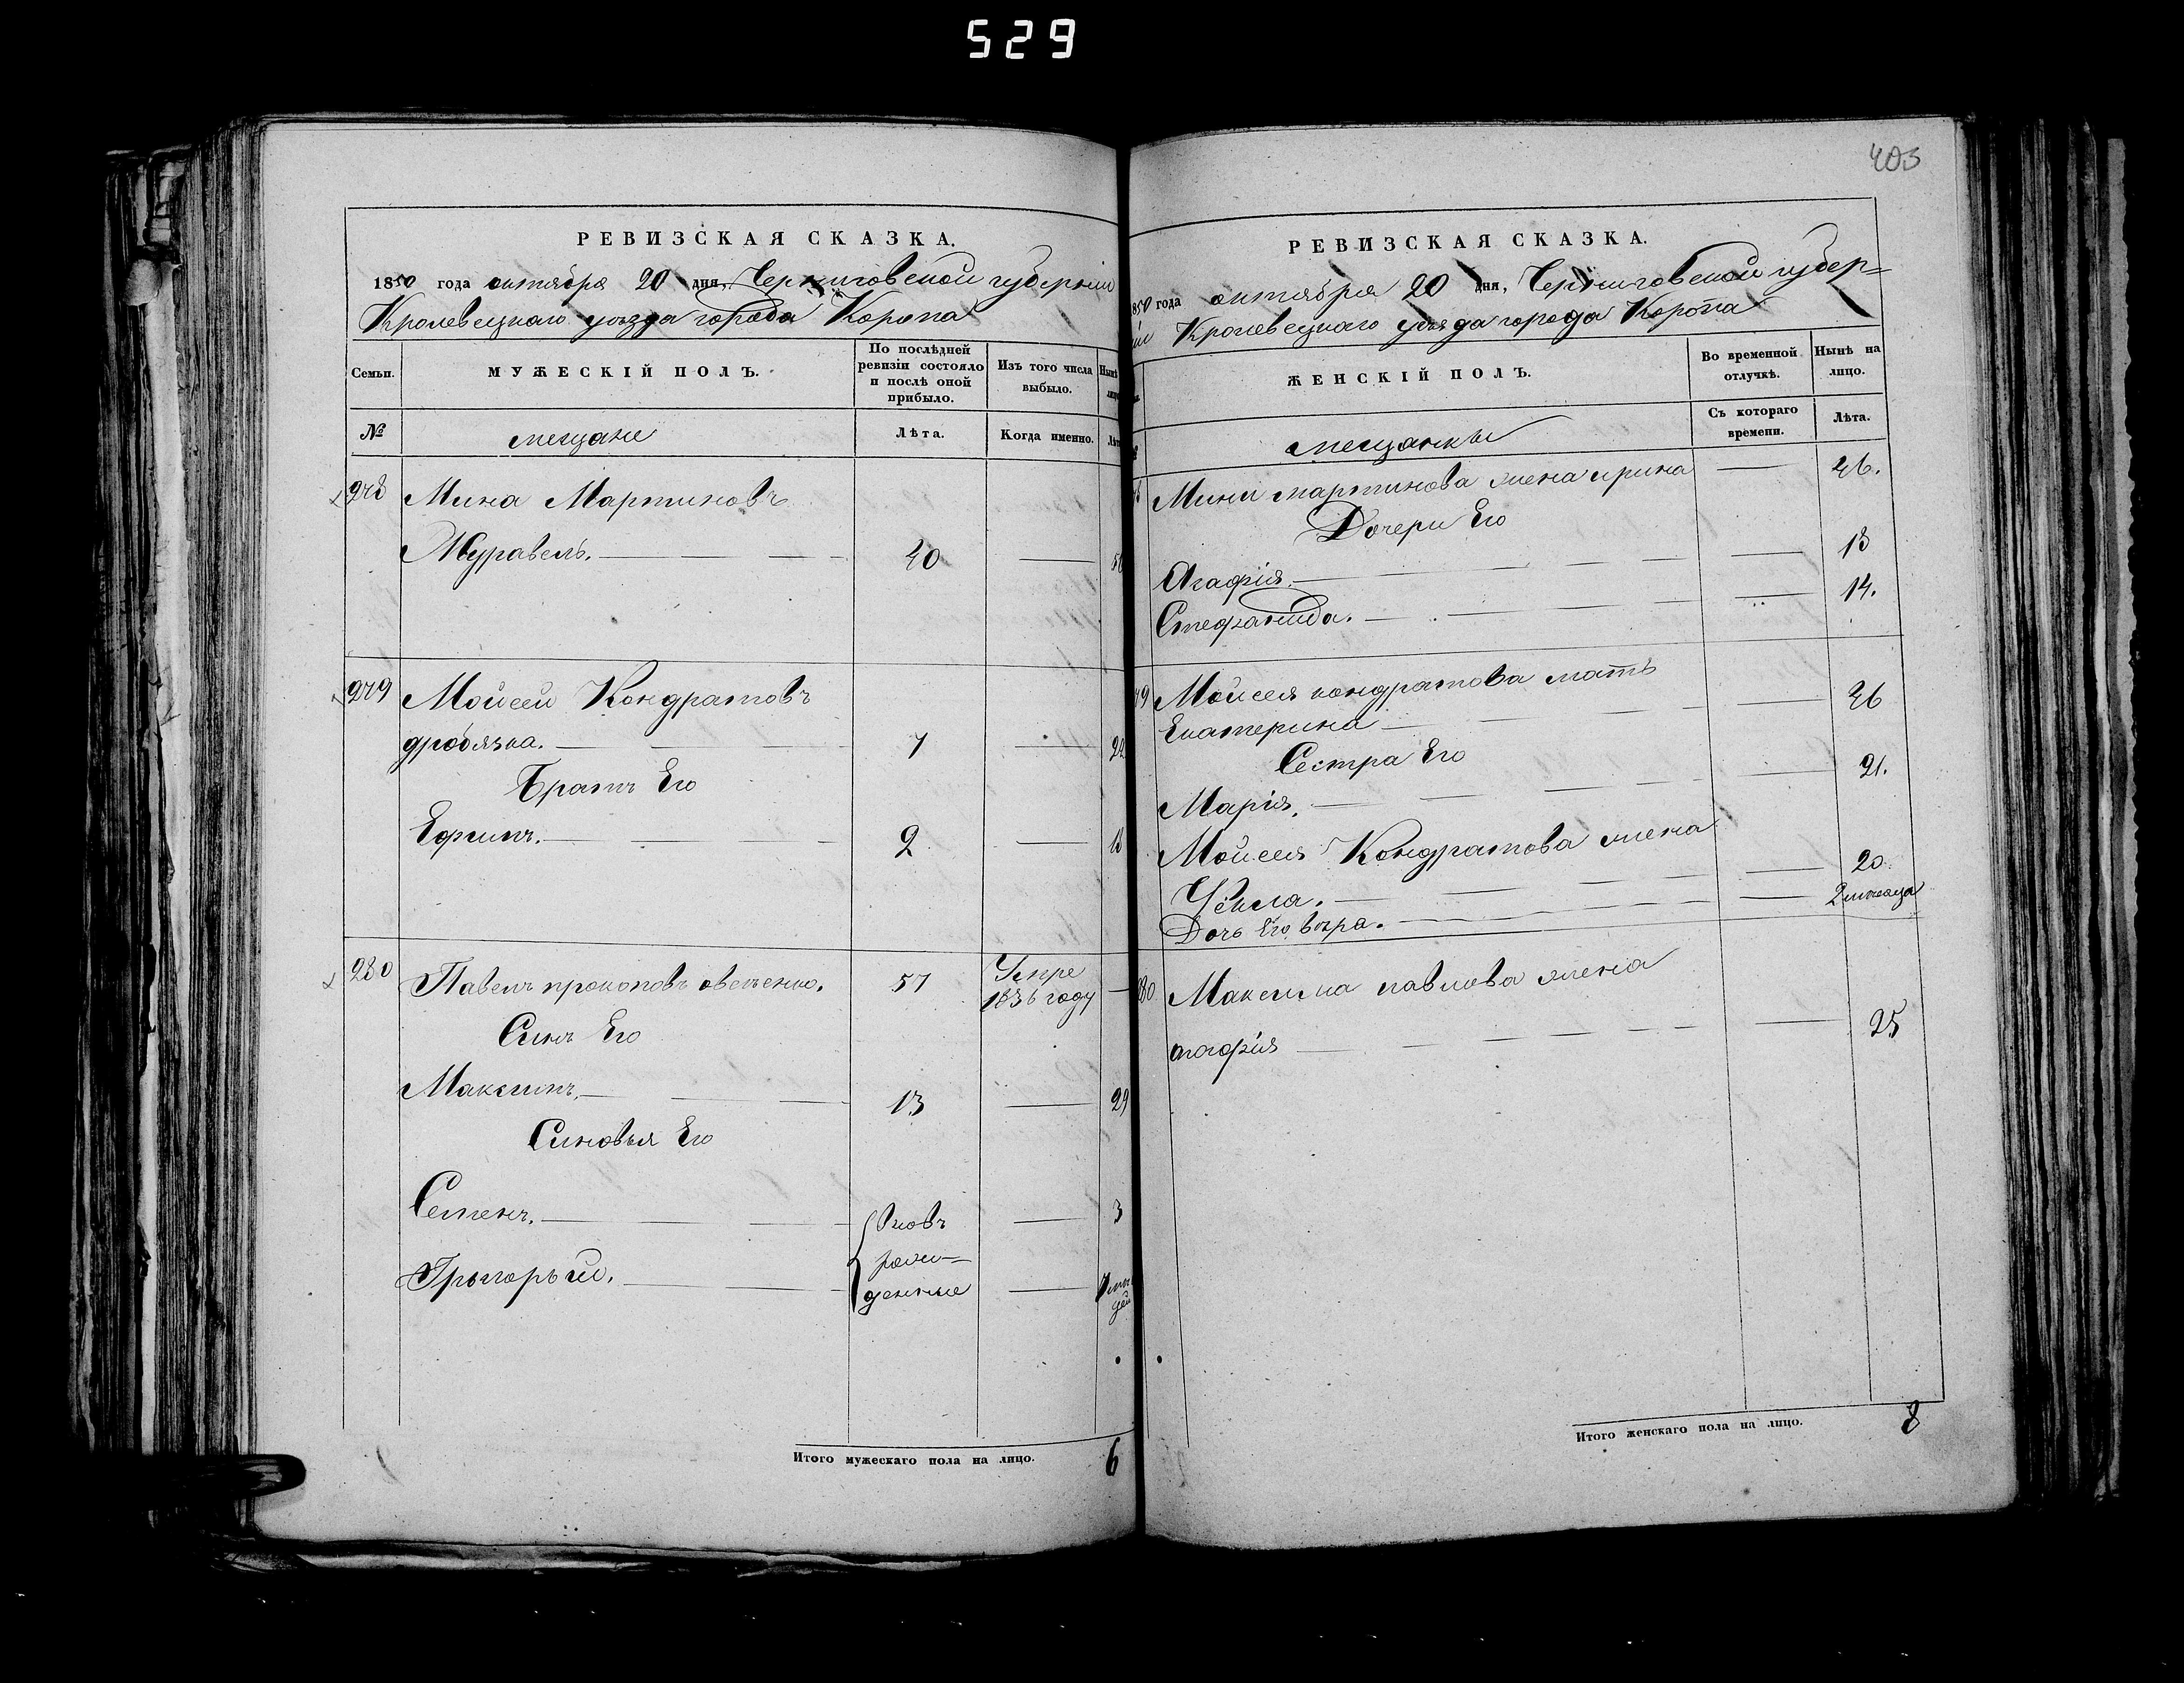 529
РЕВИЗСКАЯ СКАЗКА.
1850 года октября 20 дня, Черниговской губерніи
Кролевецкаго уѣзда города Коропа
Семьи.
МУЖЕСКІЙ ПОЛЪ.
По послѣдней ревизіи состояло и послѣ оной прибыло.
Изъ того числа выбыло.
Нынѣ
№
мещане
Лѣта.
Когда именно.
278 Мина Мартиновъ
Журавель. 40
279 Мойсей Кондратовъ
дробязка. 7 22
Братъ Его
Ефимъ. 2 18
280 Павелъ прокоповъ 57 Умре
1836 году
Синъ Его
Максимъ. 13 29
Синовья Его
Семенъ. Вновь 3
рож-
Грыгорый. денные
Итого мужескаго пола на лицо. 6
403
РЕВИЗСКАЯ СКАЗКА.
1850 года октября 20 дня, Черниговской губер=
ніи Кролевецкаго уѣзда города Коропа
ЖЕНСКІЙ ПОЛЪ.
Во временной отлучкѣ.
Нынѣ на лицо.
мещанкы
Съ котораго времени.
Лѣта.
Мини мартинова жена ирина 46.
Дочери Его
Агафія. 18
Стефанида. 14.
Мойсея кондратова мать
Екатерина 46
Сестра Его
Марія. 21.
Мойсея Кондратова жена
Фекла. 20
Дочь Его вѣра. 2 месяца
280 Максима павлова жена
агафія 25
Итого женскаго пола на лицо. 8